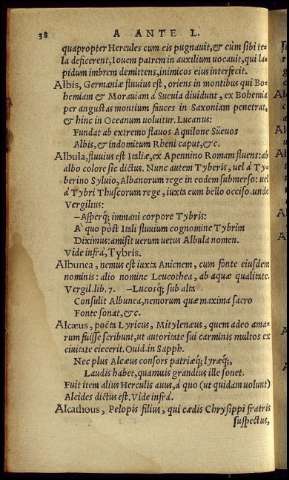 38 A ANTE L.
quapropter Hercules cum eis pugnauit, & cùm sibi te-
la deficerent, Iouem patrem in auxilium uocauit, qui la-
pidum imbrem demittens, inimicos eius interfecit.
Albis, Germaniæ fluuius est, oriens in montibus qui Bo-
hemiam & Morauiam à Sueuia diuidunt, ex Bohemia
per angustas montium fauces in Saxoniam penetrat,
& hinc in Oceanum uoluitur. Lucanus:
Fundat ab extremo flauos Aquilone Sueuos
Albis, & indomitum Rheni caput, &c.
Albula, fluuius est Italiæ, ex Apennino Romam fluens: ab
albo colore sic dictus. Nunc autem Tyberis, uel à Ty-
berino Syluio, Albanorum rege in eodem submerso: uel
à Tybri Thuscorum rege, iuxta eum bello occiso. unde
Vergilius:
–Asperq; immani corpore Tybris:
A' quo pòst Itali fluuium cognomine Tybrim
Diximus: amisit uerum uetus Albula nomen.
Vide infrà, Tybris.
Albunea, nemus est iuxta Anienem, cum fonte eiusdem
nominis: alio nomine Leucothea, ab aquæ qualitate.
Vergil. lib. 7. –Lucosq; sub alta
Consulit Albunea, nemorum quæ maxima sacro
Fonte sonat, &c.
Alcæus, poëta Lyricus, Mitylenæus, quem adeo ama-
rum fuisse scribunt, ut autoritate sui carminis multos ex
ciuitate eiecerit. Ouid. in Sapph.
Nec plus Alcæus consors patriæq; lyræq;,
Laudis habet, quamuis grandius ille sonet.
Fuit item alius Herculis auus, à quo (ut quidam uolunt)
Alcides dictus est. Vide infrà.
Alcathous, Pelopis filius, qui cædis Chrysippi fratris
suspectus,